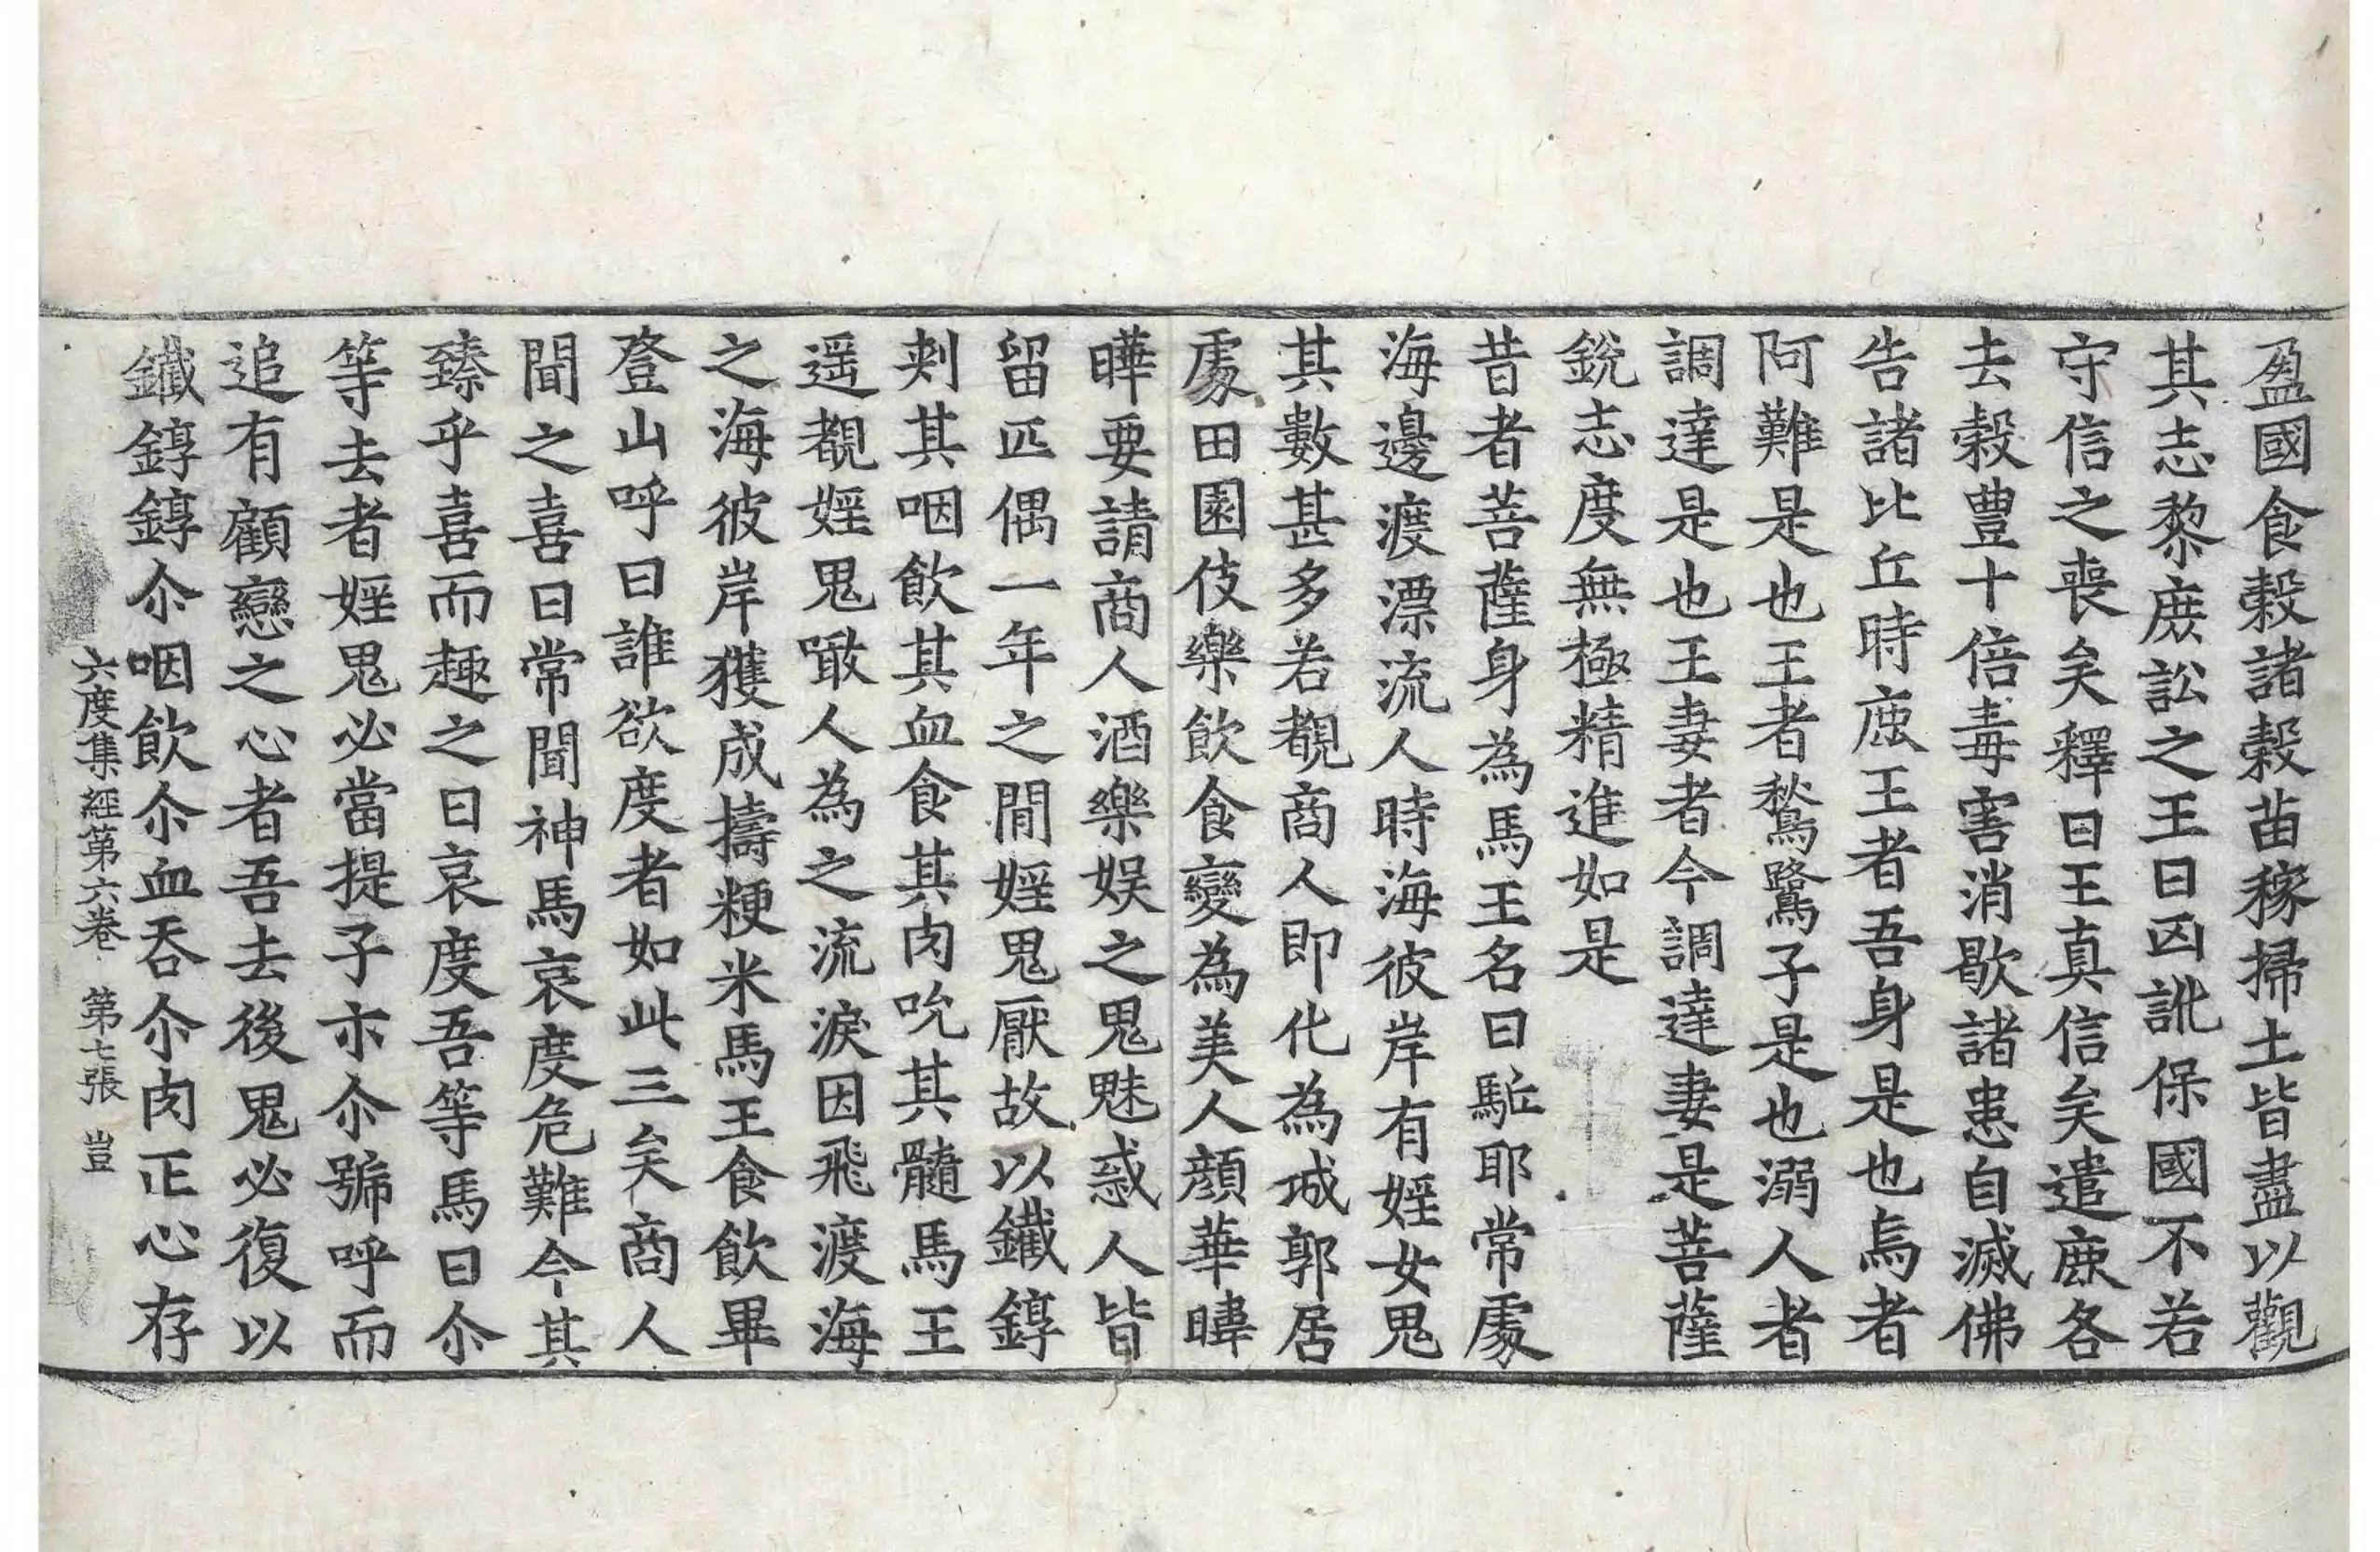 盈國食穀諸穀苗稼掃土皆盡以觀
其志黎庶訟之王曰凶訛保國不若
守信之喪矣釋曰王真信矣遣鹿各
去穀豊十倍毒害消歇諸患自滅佛
告諸比丘時鹿王者吾身是也烏者
阿難是也王者鶖鷺子是也溺人者
調達是也王妻者今調達妻是菩薩
銳志度無極精進如是
昔者菩薩身為馬王名曰駈耶常處
海邊渡漂流人時海彼岸有婬女鬼
其數甚多若覩商人即化為城郭居
處田園伎樂飲食變為美人顏華暐
曄要請商人酒樂娛之鬼魅惑人皆
留匹偶一年之閒婬鬼厭故以鐵錞
刾其咽飲其血食其肉吮其髓馬王
遥覩婬鬼噉人為之流淚因飛渡海
之海彼岸獲成擣粳米馬王食飲畢
登山呼曰誰欲度者如此三矣商人
聞之喜曰常聞神馬哀度危難今其
臻乎喜而趣之曰哀度吾等馬曰尒
等去者婬鬼必當提子示尒號呼而
追有顧戀之心者吾去後鬼必復以
鐵錞錞尒咽飲尒血吞尒肉正心存
六度集經第六卷　第七張　豈